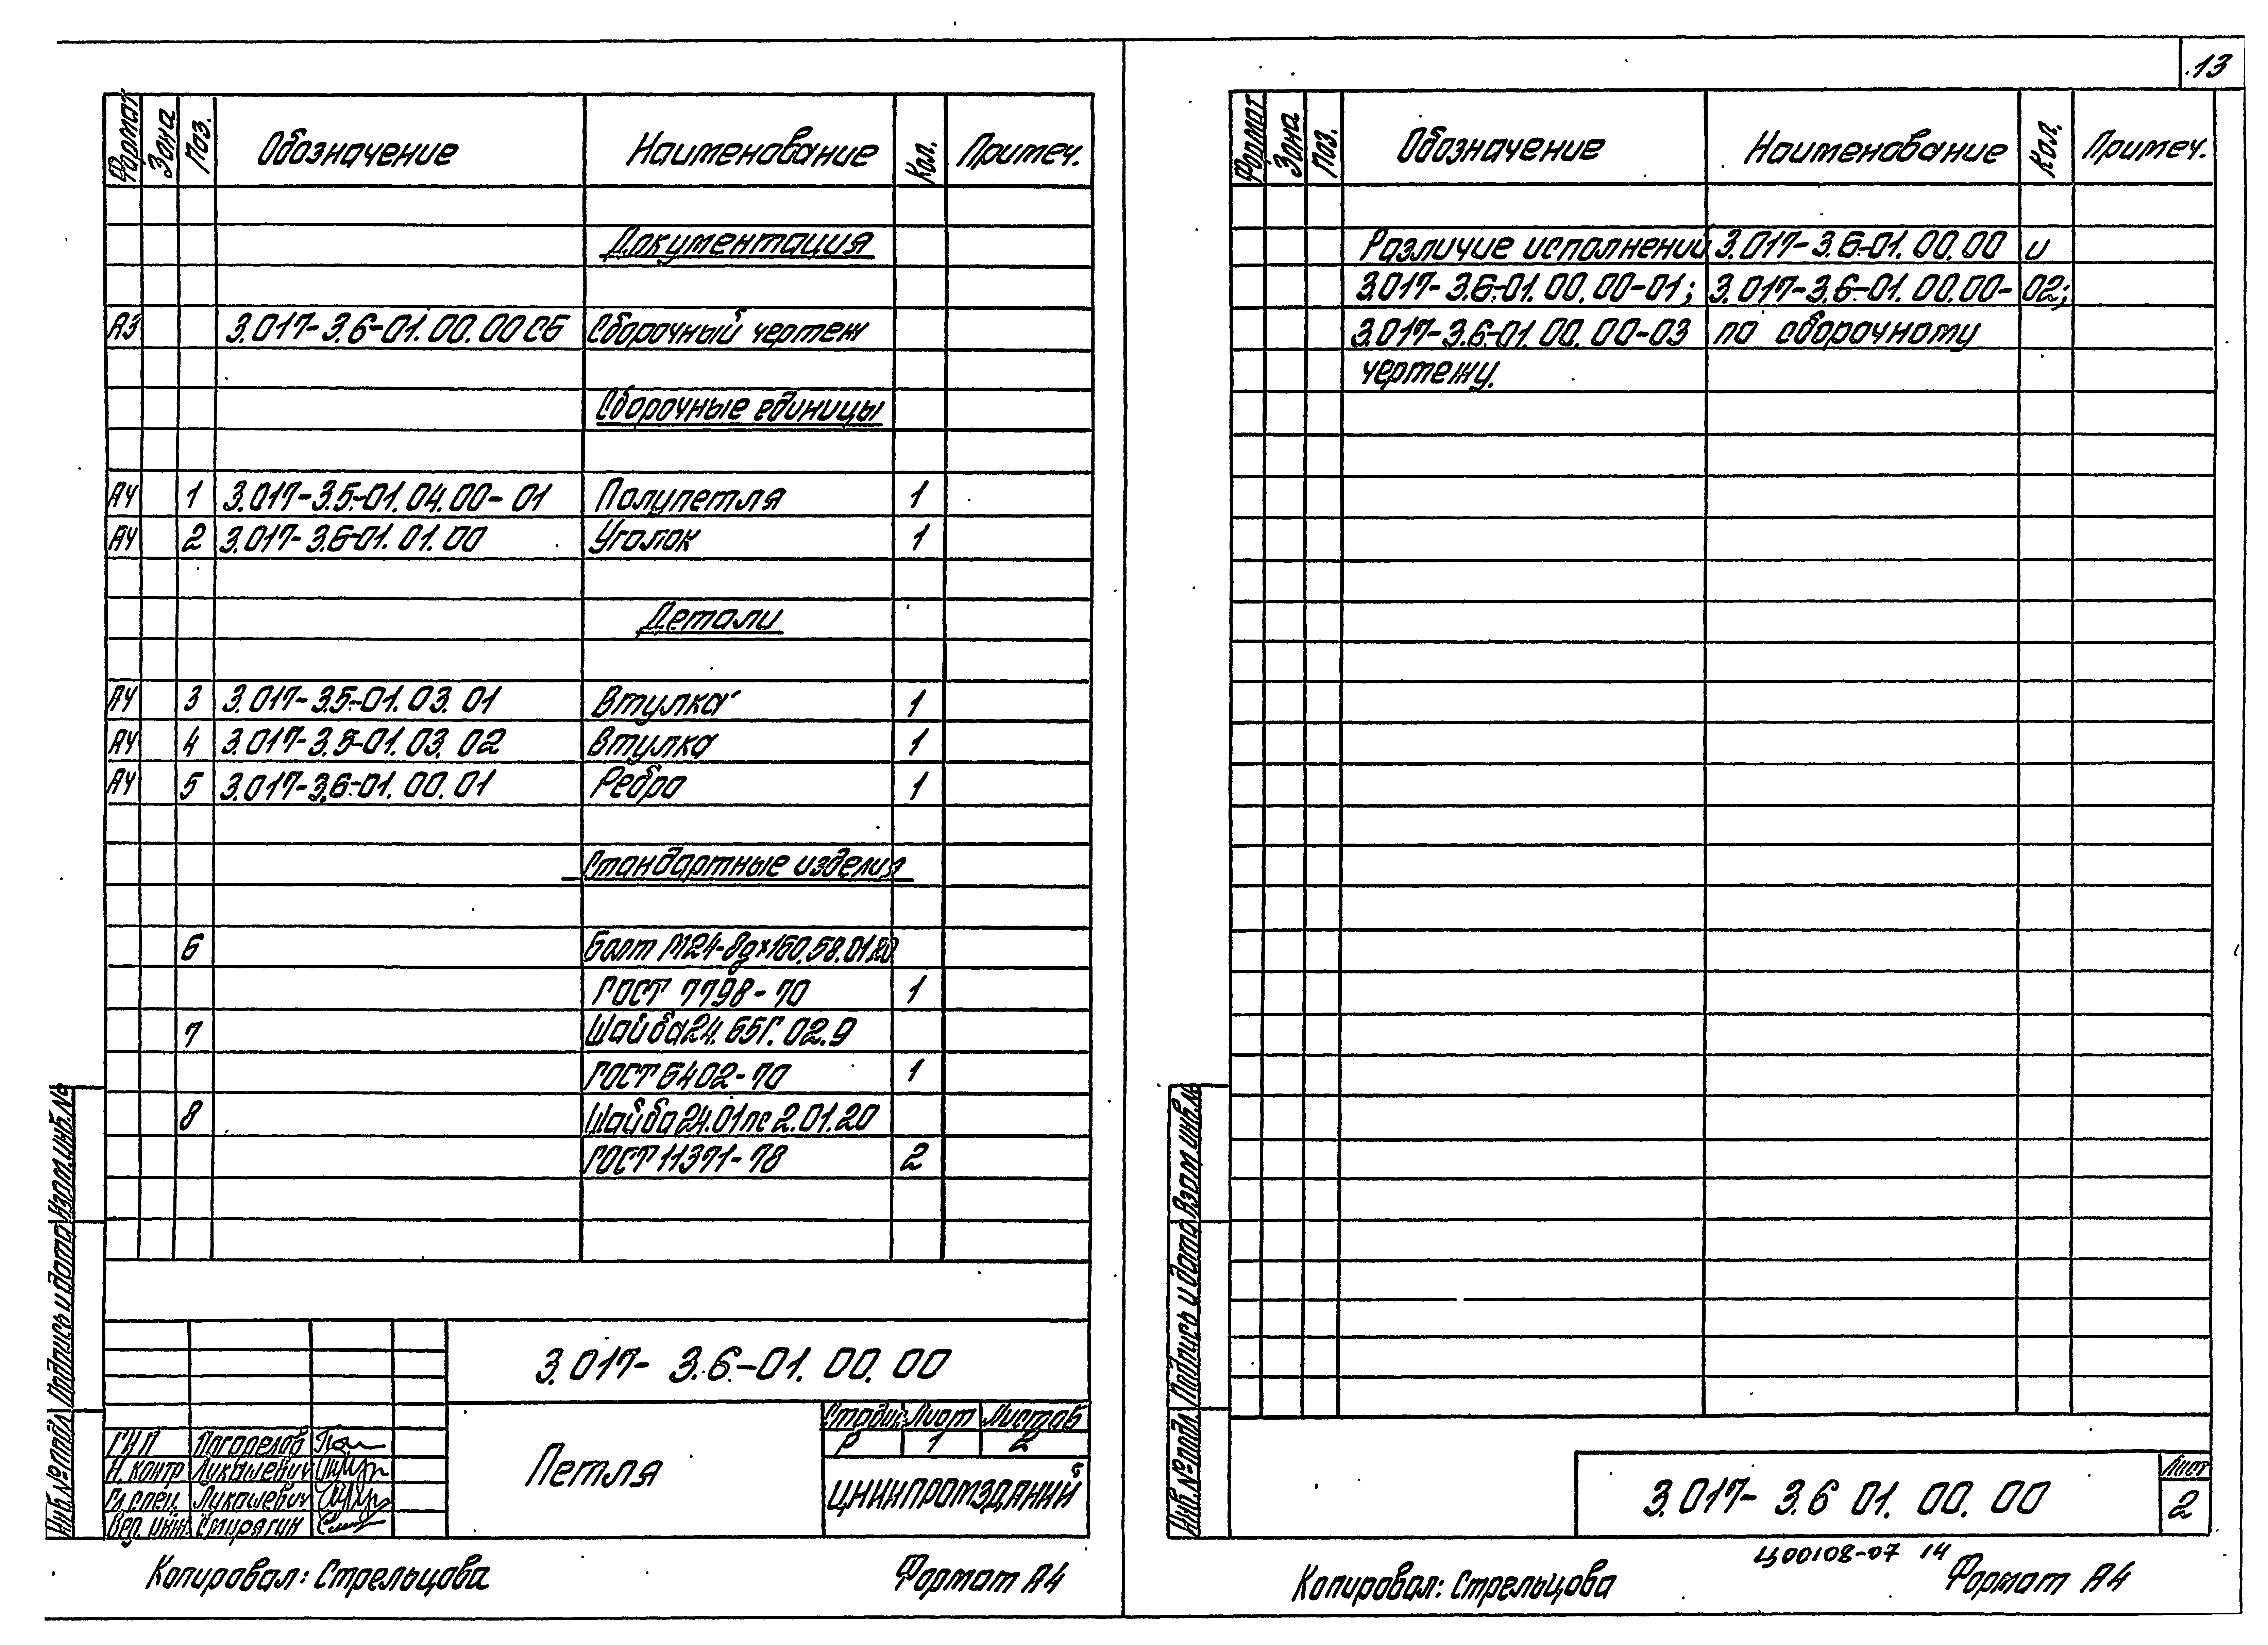 13
Формат Зона Поз. Обозначение Наименование Кол. Примеч.
Документация
А3 3.017-3.6-01.00.00СБ Сборочный чертеж
Сборочные единицы
А4 1 3.017-3.5-01.04.00-01 Полупетля 1
А4 2 3.017-3.6-01.01.00 Уголок 1
Детали
А4 3 3.017-3.5-01.03.01 Втулка 1
А4 4 3.017-3.5-01.03.02 Втулка 1
А4 5 3.017-3.6-01.00.01 Ребро 1
Стандартные изделия
6 Болт М24-8g×160.58.0120
ГОСТ 7798-70 1
7 Шайба 24.65Г.02.9
ГОСТ 6402-70 1
8 Шайба 24.01пс 2.01.20
ГОСТ 11371-78 2
Инв.№ подл. Подпись и дата Взам.инв.№
3.017-3.6-01.00.00
Стадия Лист Листов
Р 1 2
Петля
ЦНИИПРОМЗДАНИЙ
ГИП Погорелов
Н. контр Лукашевич
Гл. спец. Лукашевич
Вед. инж. Смирягин
Копировал: Стрельцова Формат А4
Формат Зона Поз. Обозначение Наименование Кол. Примеч.
Различие исполнений 3.017-3.6-01.00.00 и
3.017-3.6-01.00.00-01; 3.017-3.6-01.00.00-02;
3.017-3.6-01.00.00-03 по сборочному
чертежу.
Инв.№ подл. Подпись и дата Взам инв.№
3.017-3.6 01.00.00
Лист
2
Ц00108-07 14
Копировал: Стрельцова Формат А4